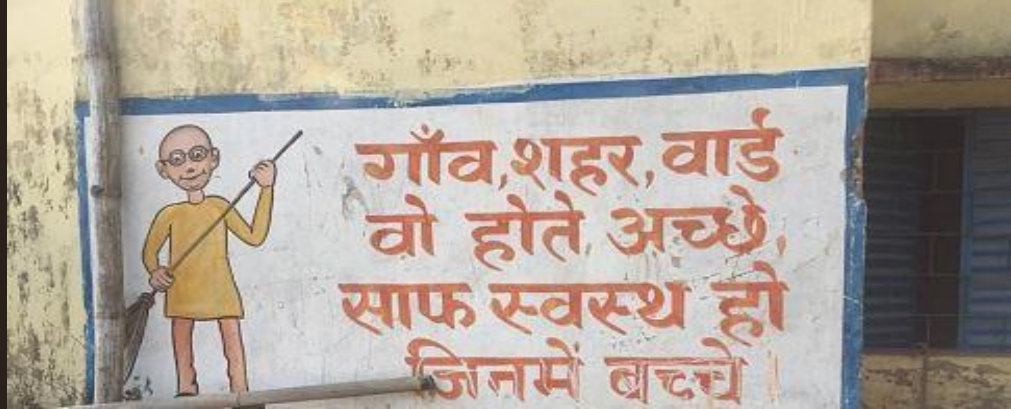 गाँव,शहर,वार्ड
वो होते अच्छे,
साफ स्वस्थ हो
जिनमें बच्चे।